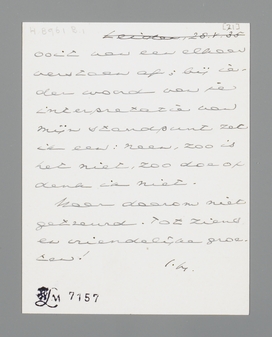 (21)
Leiden 28.1.35
ooit van een elkaar
verstaan af; bij ie-
der woord van je
interpretatie van
mijn standpunt zet
ik een: neen, zoo is
het niet, zoo doe of
denk ik niet.
Maar daarom niet
getreurd. Tot ziens
en vriendelijke groe-
ten!
LM 7157